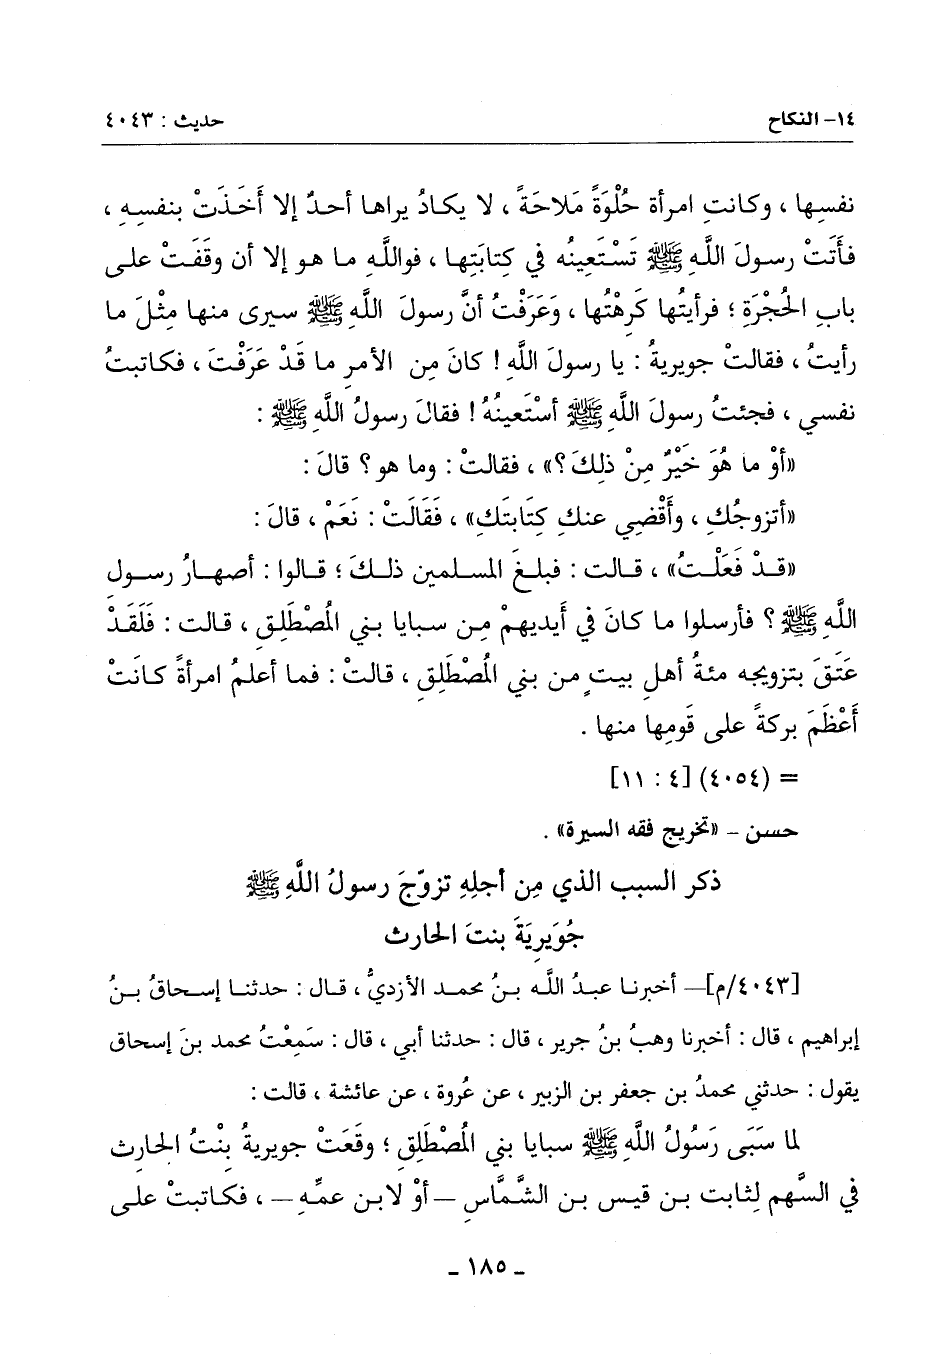 ١٤- النكاح
حديث : ٤٠٤٣
نفسِها ، وكانتِ امرأة حُلْوَةً مَلاحَةً ، لا يكادُ يراها أحدٌ إلا أَخَذَتْ بنفسِهِ ،
فأَتَتْ رسولَ اللَّهِ ﷺ تَسْتَعِينُه في كِتابَتِها ، فواللَّهِ ما هو إلا أن وقَفَتْ على
بابِ الحُجْرَةِ ؛ فرأيتُها كَرِهْتُها ، وَعَرَفْتُ أنَّ رسولَ اللَّهِ ﷺ سيرى منها مِثْلَ ما
رأيتُ ، فقالتْ جويريةُ : يا رسولَ اللَّهِ ! كانَ مِن الأمرِ ما قَدْ عَرَفْتَ ، فكاتبتُ
نفسي ، فجئتُ رسولَ اللَّهِ ﷺ أسْتَعينُهُ ! فقالَ رسولُ اللَّهِ ﷺ :
«أوْ ما هُوَ خَيْرٌ مِنْ ذلِكَ ؟» ، فقالتْ : وما هو ؟ قالَ :
«أتزوجُكِ ، وأَقْضِي عنكِ كِتابتَكِ» ، فَقَالَتْ : نَعَمْ ، قالَ :
«قدْ فَعَلْتُ» ، قالت : فبلغَ المسلمين ذلكَ ؛ قالوا : أصهارُ رسول
اللَّهِ ﷺ ؟ فأرسلوا ما كانَ في أيديهمْ مِن سبايا بني المُصْطَلِقِ ، قالت : فَلَقَدْ
عَتَقَ بتزويجه مئةُ أهلِ بيتٍ من بني المُصْطَلِقِ ، قالتْ : فما أعلمُ امرأةً كانَتْ
أَعْظَمَ بركةً على قَومِها منها .
= (٤٠٥٤) [٤ : ١١]
حسن – «تخريج فقه السيرة» .
ذكر السبب الذي مِن أجلِهِ تزوّجَ رسولُ اللَّهِ ﷺ
جُوَيرِيَةَ بنتَ الحارث
[٤٠٤٣/م]– أخبرنا عبدُ اللَّه بنُ محمد الأزديُّ ، قال : حدثنا إسحاقُ بنُ
إبراهيم ، قال : أخبرنا وهبُ بنُ جرير ، قال : حدثنا أبي ، قال : سَمِعْتُ محمد بنَ إسحاق
يقول : حدثني محمدُ بن جعفر بن الزبير ، عن عُروة ، عن عائشة ، قالت :
لما سَبَى رَسُولُ اللَّهِ ﷺ سبايا بني المُصْطَلِقِ ؛ وقَعَتْ جويريةُ بِنْتُ الحارث
في السَّهم لِثابت بن قيس بن الشَّمَّاسِ –أوْ لابن عمِّه– ، فكاتبتْ على
– ١٨٥ –